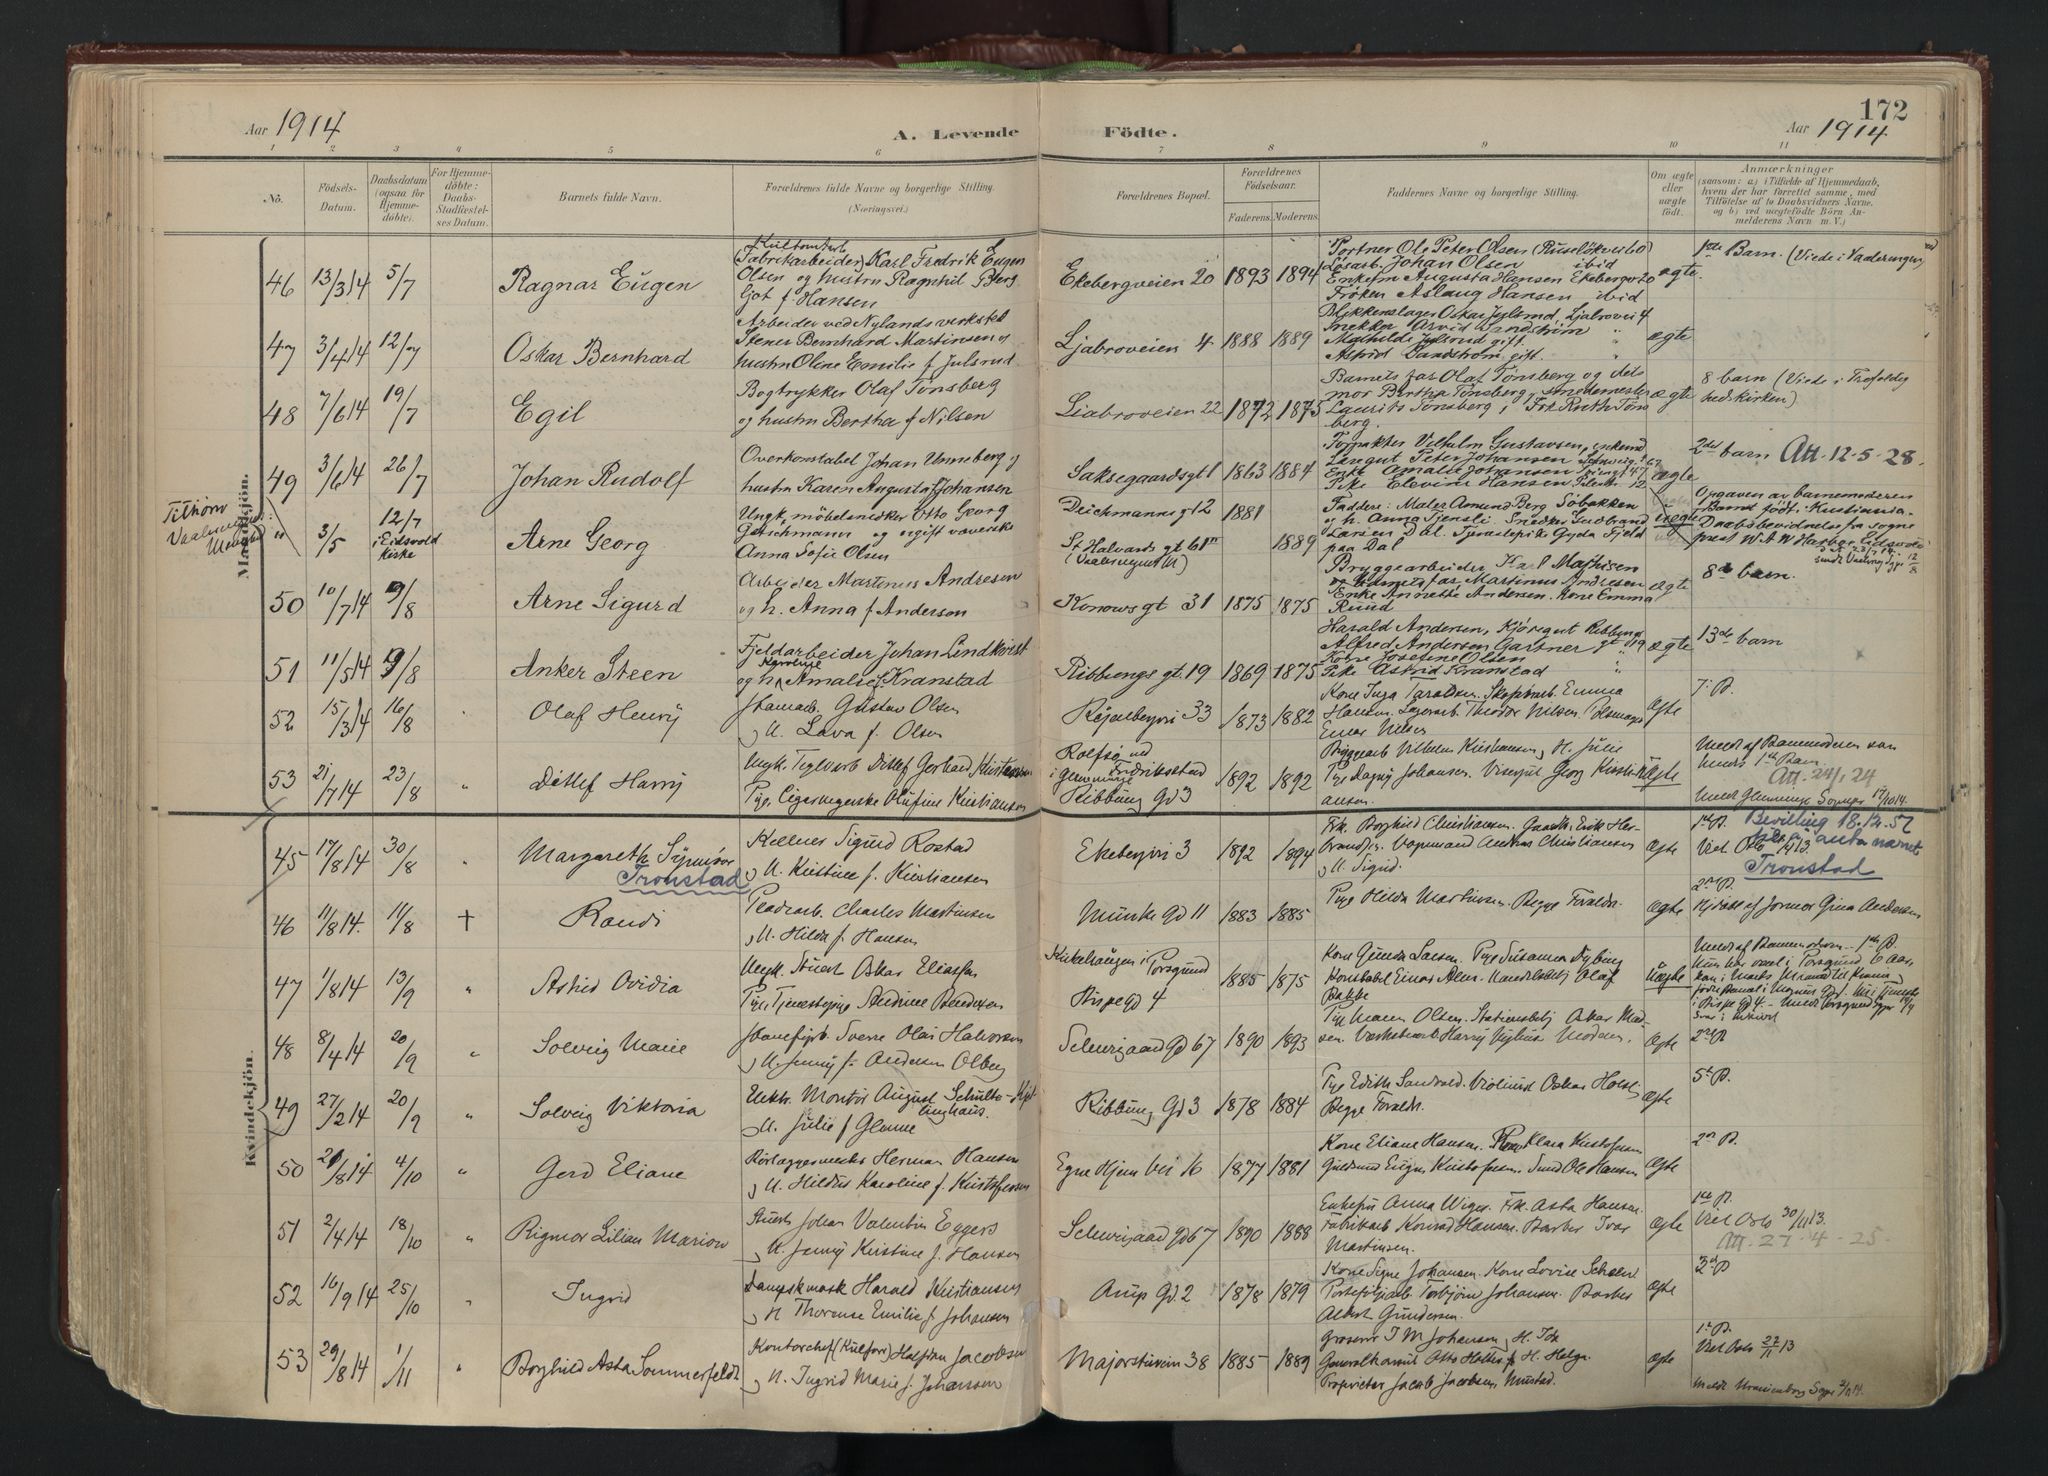 172
Aar 1914
A. Levende
Födte.
Aar 1914
1 2 3 4 5 6 7 8 9 10 11
No.
Födsels-
Datum.
Daabsdatum
(ogsaa for
Hjemme-
döbte).
For Hjemme-
döbte:
Daabs-
Stadfæstel-
ses Datum.
Barnets fulde Navn.
Forældrenes fulde Navne og borgerlige Stilling.
(Næringsvei.)
Forældrenes Bopæl.
Forældrenes
Födselsaar.
Faderens. Moderens.
Faddernes Navne og borgerlige Stilling.
Om ægte
eller
uægte
födt.
Anmærkninger
(saasom: a.) i Tilfælde af Hjemmedaab,
hvem der har forrettet samme, med
Tilföielse af to Daabsvidners Navne.
og b) ved uægtefödte Börn An-
melderens Navn m. V.)
Mandkjön.
46 13/3 14 5/7 Ragnar Eugen
Fabrikarbeider Karl Fredrik Eugen
Olsen og hustru Ragnhil Berg
ljot f. Hansen
Ekebergveien 20 1893 1894
Portner Ole Peter Olsen (Ruselökvei 60)
Lösarb. Johan Olsen ibid
Enkefru Augusta Hansen Ekebergv. 20
Fröken Aslaug Hansen ibid
ægte.
1ste Barn. (Viede i Vaaleringen)
47 3/4 14 12/7 Oskar Bernhard
Arbeider ved Nylands verksted
Stener Bernhard Martinsen og
hustru Olene Emilie f Julsrud
Ljabroveien 4 1888 1889
Blikkenslager Oskar Julsrud, Ljabrovei 4
Snekker Arvid Sandström "
Mathilde Julsrud gift. "
Astrid Sandström gift. "
ægte
48 7/6 14 19/7 Egil
Bogtrykker Olaf Tönsberg
og hustru Bertha f Nilsen
Liabroveien 22 1872 1875
Barnets far Olaf Tönsberg og dets
mor Bertha Tönsberg, smedemester
Laurits Tönsberg, Frk Ruth Töns
berg.
ægte
8 barn (Viede i Trefoldig
hedskirken)
49 3/6 14 26/7 Johan Rudolf
Overkonstabel Johan Unneberg og
hustru Karen Augusta f Johansen
Saksegaardsgt 1 1863 1884
Forpakter Vilhelm Gustavsen, enkemd
Visergut Peter Johansen
Enke Amalie Johansen
Pike Elevine Hansen
ægte
2det barn Att. 12-5-28.
Tilhører
Vaalerengens
Menighed
" 3/5 12/7
i Eidsvold
kirke
Arne Georg
Ungk. möbelsnedker Otto Georg
Götschmann og ugift væverske
Anna Sofie Olsen
Deichmanns gt 2 1881
St Halvards gt 61 III 1889
(Vaalerengens M)
Faddere: Maler Amund Berg Söbakken
og h. Anna Tjensli. Snedker Gudbrand
Larsen Dal. Tjenestepike Gyda Fjeld
paa Dal
uægte
Opgaven av barnemoderen
Barnet födt i Kristiania.
Daabsbevidnelse fra sogne
prest W A W Harboe Eidsvold
50 10/7 14 9/8 Arne Sigurd
Arbeider Martinus Andresen
og h. Anna f Anderson
Konowsgt 31 1875 1875
Bryggearbeider Karl Mathisen
og barnets far Martinus Andresen
Enke Annette Andersen. Kone Emma
Ruud
ægte
8de barn.
51 11/5 14 9/8 Anker Steen
Fjeldarbeider Johan Lindkvist
og h. Amalie f. Kranstad
Ribbungs gt. 19 1869 1875
Harald Andersen, Kjöregut Ribbungs
Alfred Andersen Gartner gt 19
Kone Josefine Olsen "
Pike Astrid Kranstad "
ægte
13de barn
52 15/3 14 16/8 Olaf Henry
Gustav Olsen
og H. Lava f. Olsen
33 1873 1882
Kone Inga Emma
Hansen. Lagerarb. Theodor Nilsen.
Einar Nilsen
ægte
7. B.
53 21/7 14 23/8 " Ditlef Harry
Ungk. Teglvarb Ditlef Gerhard Kristensen
Pige. Cigarmagerske Olufine Kristiansen
Rolfsö ved
Fredrikstad
i Glemminge
Ribbung Gd 3 1892 1892
Bryggearb Vilhelm Kristiansen, H. Julie
Pige Dagny Johansen. Visergut Georg Kristi
ansen.
Uægte
Meldt af Barnemoderen som
hendes 1ste Barn
Att. 24/1 24
Meldt Glemminge Sognepr 17/10 14.
Kvindekjön.
45 17/8 14 30/8 " Margareth Synnöve
Tronstad
Kellner Sigurd Rostad
og H. Kristine f. Kristiansen
Ekebergvei 3 1892 1894
Frk. Borghild Christiansen.
Vognmand Andreas Christiansen
og H. Sigrid.
ægte
1ste B.
Bevilling 18.12.52
Viet Oslo 13.
Tronstad
46 11/8 14. 11/8 † Randi
Charles Martinsen
og H. Hilda f. Hansen
Munke Gd 11 1883 1885
Pige Hilda Martinsen. Begge Forældr.
ægte
2den B.
Hjdöbt af Jormor Gina Andersen
47 1/8 14 13/9 " Astrid Ovidia
Ungk. Stuert Oskar Eliassen
Pige, Tjenestepige Andrine Bendixen
Kirkehaugen i
Porsgrund
Bispe Gd 4 1885 1875
Kone Gunda Larsen. Pige Susanna Nyborg
Konstabel Einar Olsen. Olaf
Bakke
Uægte
Meldt af Barnemoderen – 1ste B.
48 8/4 14 20/9 " Solveig Marie
Sverre Olai Halvorsen
og H. Jenny f. Andersen Olberg
Schweigaard Gd 67 1890 1893
Pige Maren Olsen. Stationsbetj Aksel Mad-
sen. Værkstedarb Harry Madsen.
ægte
2den B
49 27/2 14 20/9 " Solveig Viktoria
Elektr. Montör August Schulte-Kipt
linghaus.
og H. Julie f Glenne
Ribbung Gd 3 1878 1884
Pige Edith Sandvold. Violinist Oskar Holst.
Begge Forældr.
ægte
5te B.
50 21/8 14 4/10 " Gerd Eliane
Rörlæggermester Herman Hansen
og H. Hildus Karoline f. Kristofersen
Egne Hjem Vei 16 1877 1881
Kone Eliane Hansen. Klara Kristofersen
Guldsmed Kristofersen. Smed Ole Hansen
ægte
2den B.
51 2/4 14 18/10 " Rigmor Lilian Marion
Stuert Johan Valentin Eggers
og H. Jenny Kristine f. Hansen
Schweigaard Gd 67 1890 1888
Enkefru Anna Wiger. Frk. Asta Hansen.
Fabrikarb Konrad Hansen. Barber Ivar
Martinsen.
ægte
1ste B.
Viet Oslo 30/11 13.
Att. 27-4-25.
52 16/9 14 25/10 " Ingrid
Dampskmask Harald Kristiansen
og H Thorense Emilie f. Johansen
Arup Gd. 2 1878 1879
Kone Signe Johansen. Kone Lovise
Porteföljearb Torbjörn Johansen. Barber
Albert Gundersen.
ægte
3die B
53 29/8 14 1/11 " Borghild Asta Sommerfeldt
Kontorchef Halfdan Jacobsen
og H. Ingrid Marie f. Johansen
Majorstuvein 38 1885 1889
Grosserer I M Johansen, H. Ida
Generalkonsul Otto H. Helga
Proprietær Jacob Jacobsen,
ægte
1ste B.
Viet Oslo 27/11 13
Meldt Uranienborg Sogpr 14.